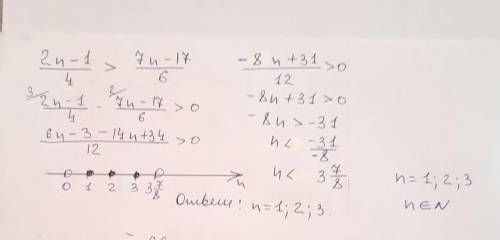 (2n-1)/4 > (7n-17)/6
3 (2n-1)/4 - 2 (7n-17)/6 > 0
(6n-3-14n+34)/12 > 0
(-8n+31)/12 > 0
-8n+31 > 0
-8n > -31
n < (-31)/(-8)
n < 3 7/8
0 1 2 3 3 7/8 n
n = 1; 2; 3
n ∈ N
Ответ: n = 1; 2; 3.